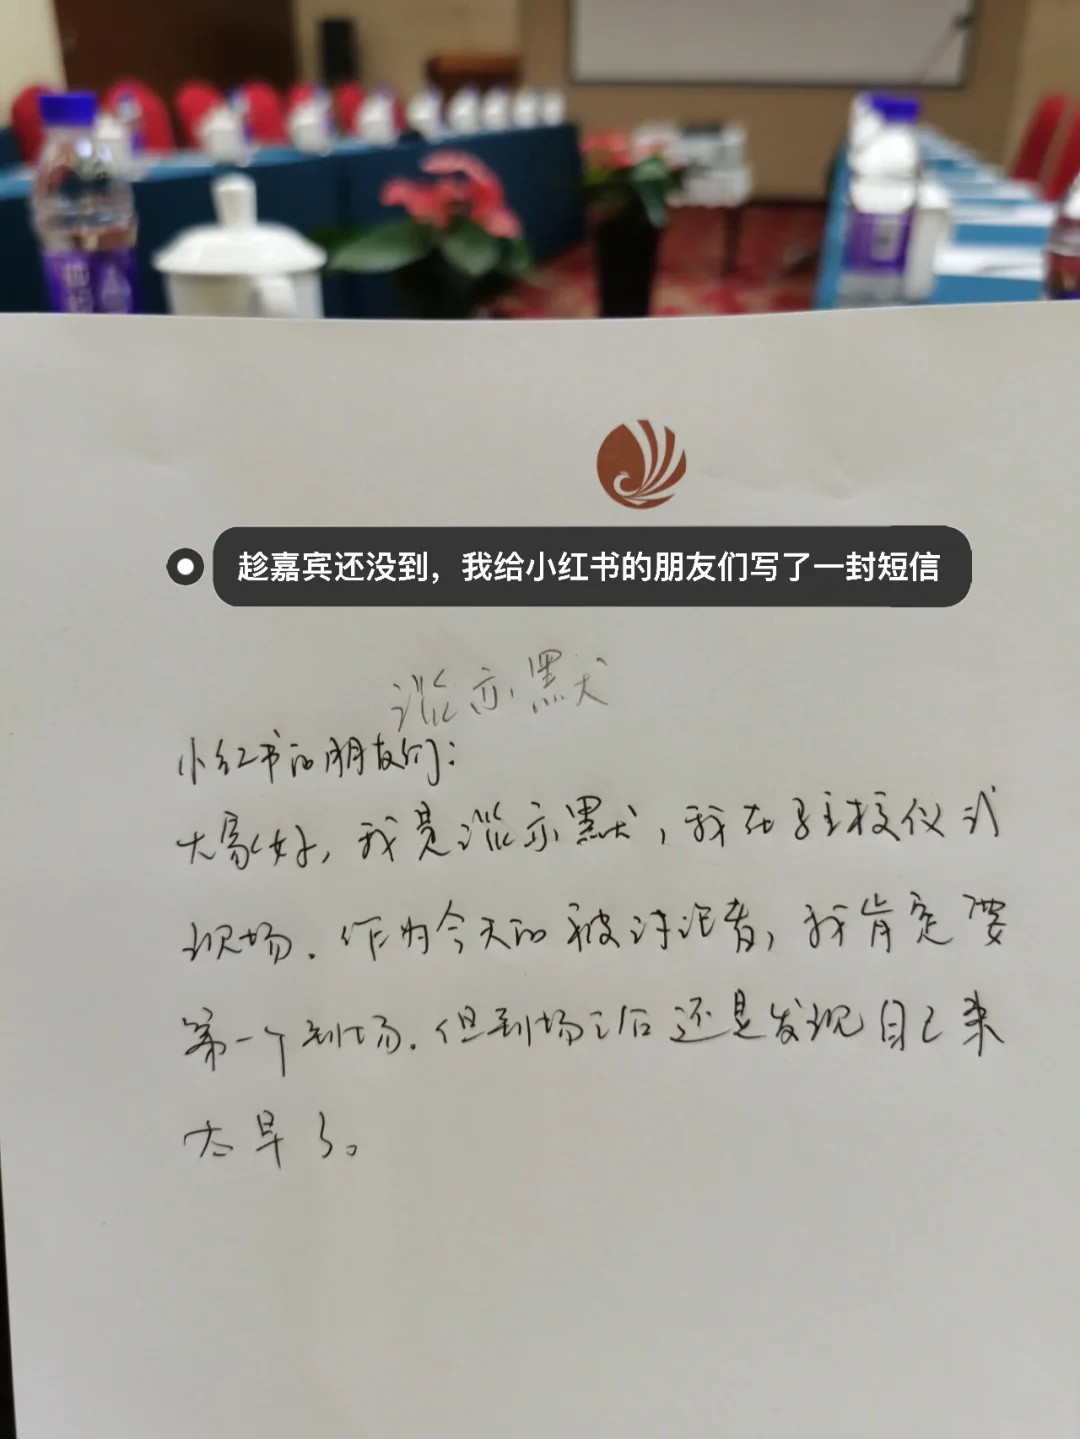 趁嘉宾还没到，我给小红书的朋友们写了一封短信
谈亦默
小红书的朋友们：
大家好，我是谈亦默，我在驻校仪式
现场.作为今天的被讨论者，我肯定要
第一个到场.但到场之后还是发现自己来
太早了。